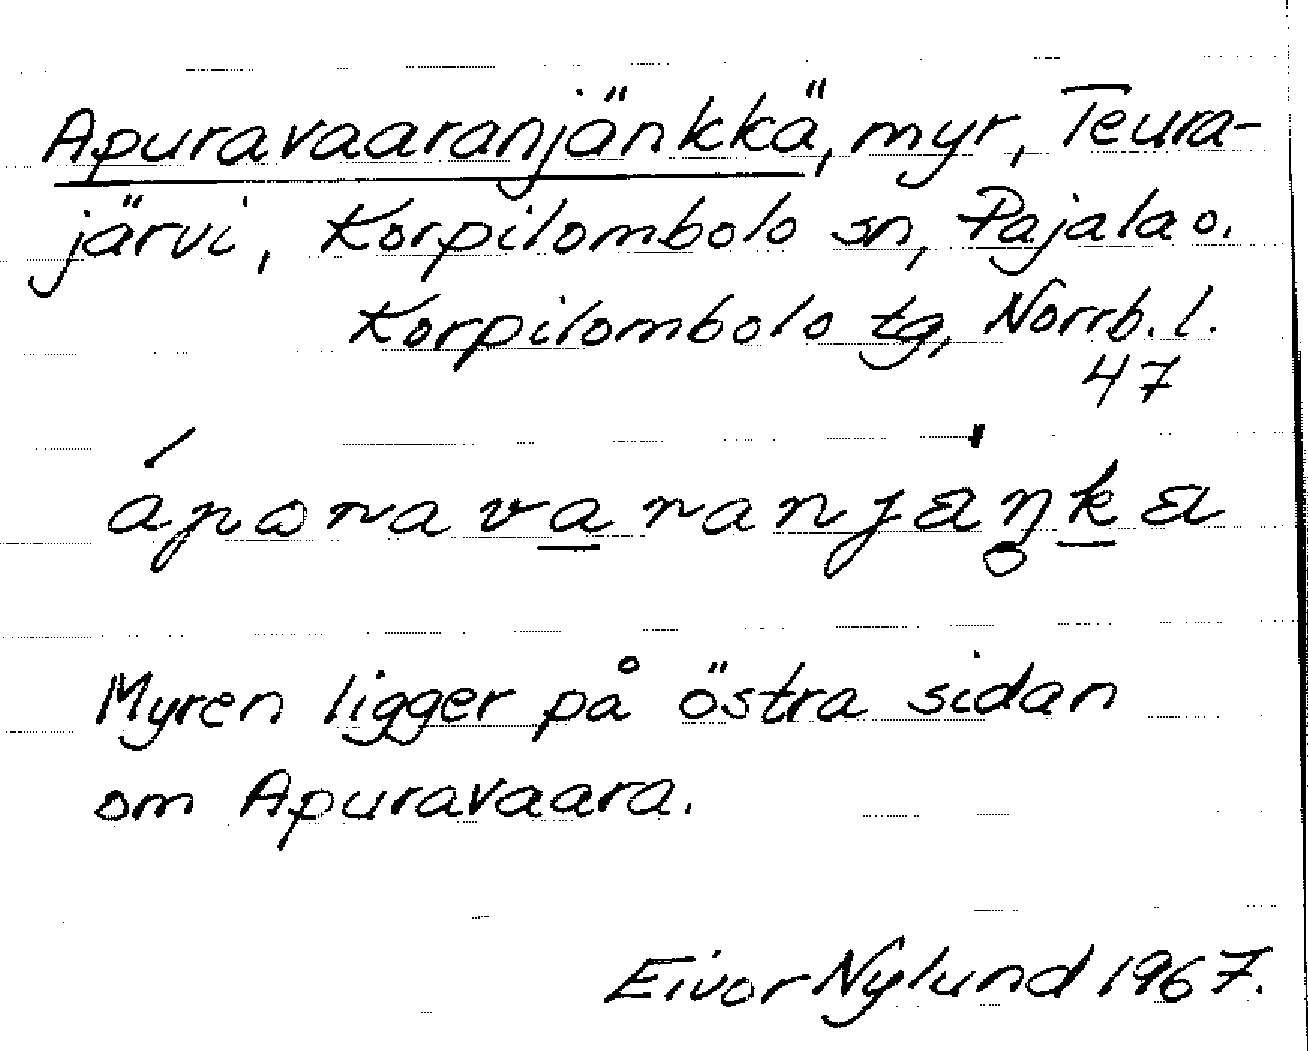 Apuravaaranjänkkä, myr, Teura-
järvi, Korpilombolo sn, Pajala o.
Korpilombolo tg, Norrb. l.
47
Myren ligger på östra sidan
om Apuravaara.
Eivor Nylund 1967.